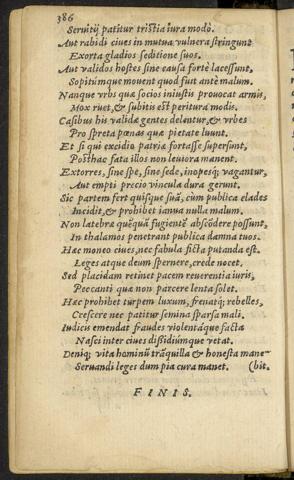 386
Seruitij patitur tristia iura modò.
Aut rabidi ciues in mutua vulnera stringunt
Exorta gladios seditione suos.
Aut validos hostes sine causa fortè lacessunt,
Sopitumque mouent quod fuit ante malum.
Nanque vrbs quæ socios iniustis prouocat armis,
Mox ruet, & subitis est peritura modis.
Casibus his validæ gentes delentur, & vrbes
Pro spreta pœnas quæ pietate luunt.
Et si qui excidio patriæ fortasse supersunt,
Posthac fata illos non leuiora manent.
Extorres, sine spe, sine sede, inopesq; vagantur,
Aut empti precio vincula dura gerunt.
Sic partem fert quisque suã, cùm publica clades
Incidit, & prohibet ianua nulla malum.
Non latebræ quẽquã fugientẽ abscõdere possunt,
In thalamos penetrant publica damna tuos.
Hac moneo ciues, nec fabula ficta putanda est.
Leges atque deum spernere, crede nocet.
Sed placidam retinet pacem reuerentia iuris,
Peccanti quæ non parcere lenta solet.
Hæc prohibet turpem luxum, frenatq; rebelles,
Crescere nec patitur semina sparsa mali.
Iudicis emendat fraudes violentáque facta
Nasci inter ciues dissidiúmque vetat.
Deniq; vita hominũ trãquilla & honesta mane-
Seruandi leges dum pia cura manet. (bit.
FINIS.